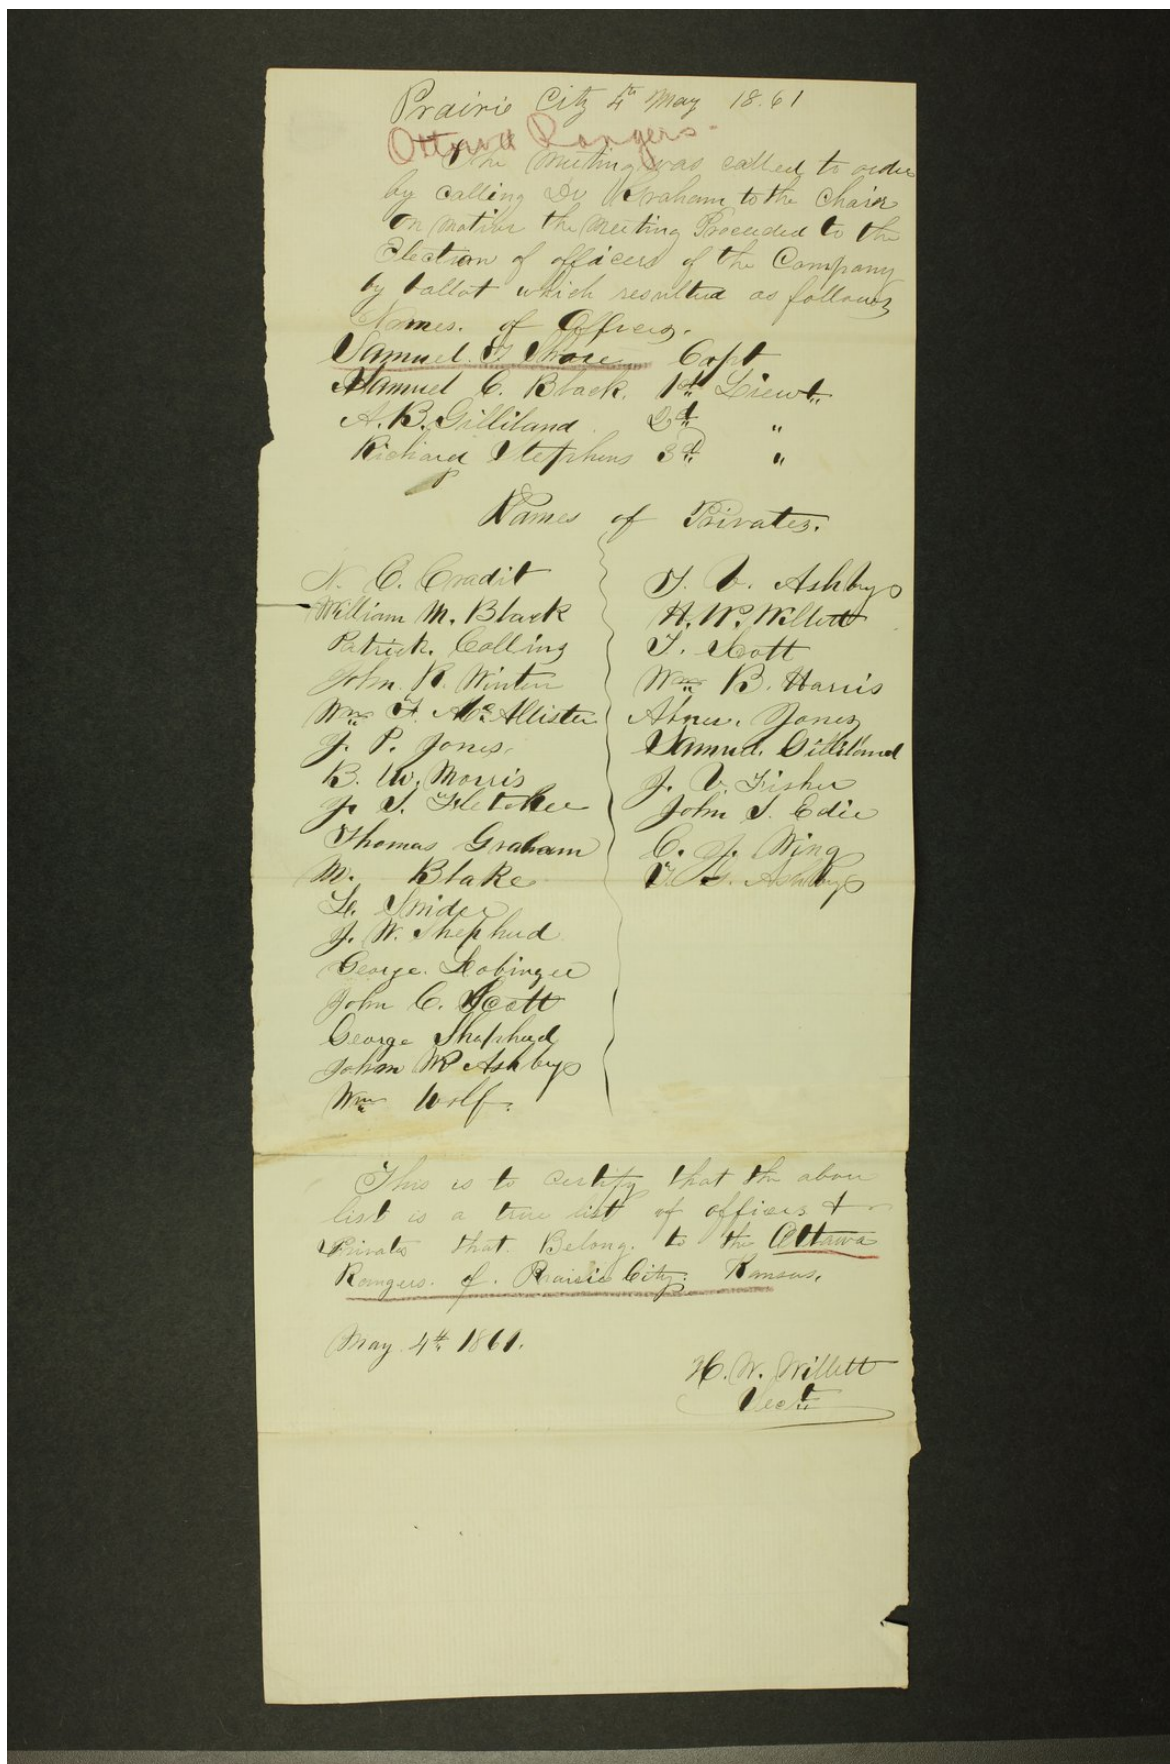 Prairie City 4th May 18.61
Ottawa Rangers.
The Meeting was called to order
by calling Dr Graham to the Chair
On motion the Meeting Proceeded to the
Election of officers of the Company
by ballot which resulted as follows
Names. of Officers.
Samuel. T. Shore Capt
Samuel C. Black. 1st Lieut.
A. B. Gilliland 2d "
Richard Stephens 3d "
Names of Privates.
N. C. Cradit
William M. Black
Patrick. Collins
John. R. Winter
Wm F. Mc.Allister
J. P. Jones.
B. W. Morris
J. S. Fletcher
Thomas Graham
M. Blake
L. Snider
J. W. Shepherd
George. Lobinger
John C. Scott
George Shepherd
John W Ashby
Wm Wolf.
T. V. Ashby
H. W. Willett
T. Scott
Wm B. Harris
Abner. Jones
Samuel. Gilliland
J. V. Fisher
John S. Edie
C. J. Wing
T. G. Ashby
This is to certify that the above
list is a true list of officers &
Privates that. Belong. to the Ottawa
Rangers. of. Prairie City. Kansas.
May. 4th 1861.
H. W. Willett
Sect